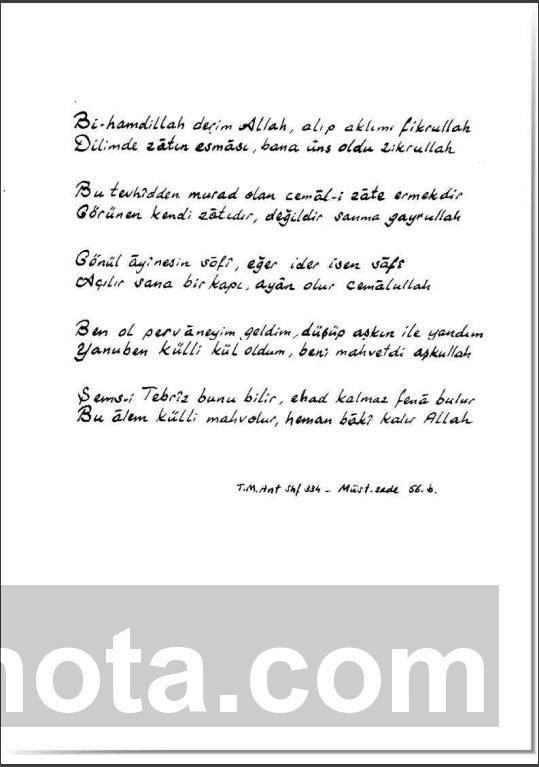 Bi-hamdillah derim Allah, alıp aklımı fikrullah
Dilimde zâtın esmâsı, bana üns oldu zikrullah
Bu tevhîdden murad olan cemâl-i zâte ermekdir
Görünen kendi zâtıdır, değildir sanma gayrullah
Gönül âyînesin sôfî, eğer ider isen sâfî
Açılır sana bir kapı, ayân olur cemâlullah
Ben ol pervâneyim geldim, düşüp aşkın ile yandım
Yanuben külli kül oldum, beni mahvetdi aşkullah
Şems-i Tebrîz bunu bilir, ehad kalmaz fenâ bulur
Bu âlem külli mahvolur, heman bâkî kalır Allah
T.M.Ant Shf 334 - Müst.zade 56-b.
nota.com